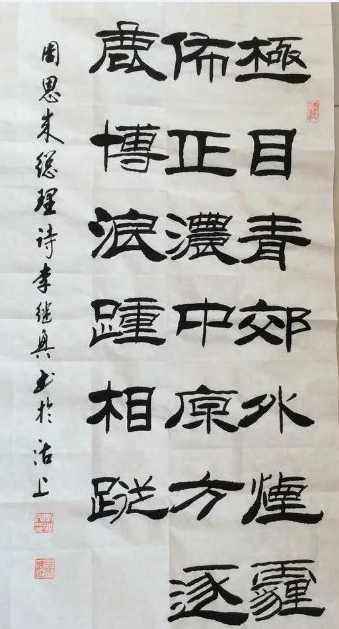 極目青郊外煙霾
佈正濃中原方逐
鹿博浪踵相蹤
周恩来總理诗李继興书於沽上